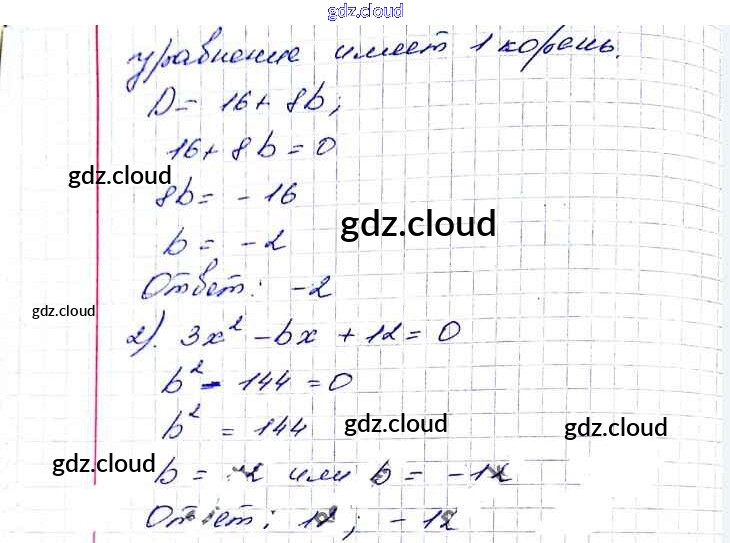 gdz.cloud
уравнение имеет 1 корень.
D = 16 + 8b;
16 + 8b = 0
gdz.cloud
8b = - 16
gdz.cloud
b = - 2
Ответ: -2
gdz.cloud
2). 3x² - bx + 12 = 0
b² - 144 = 0
b² = 144
gdz.cloud
gdz.cloud
gdz.cloud
b = или b = -12
Ответ: 12; -12